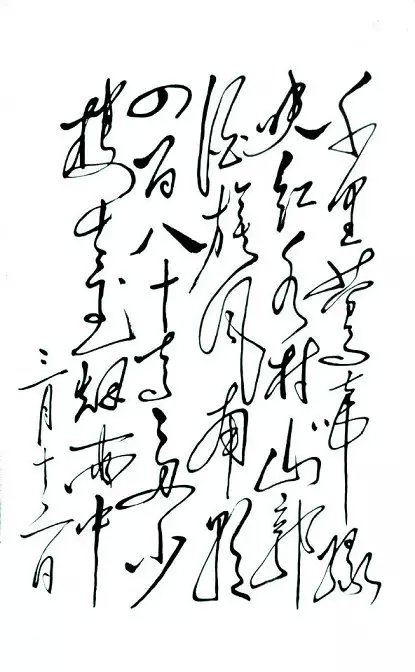 千里鶯啼綠
映紅水村山郭
酒旗風南朝
四百八十寺多少
樓臺烟雨中
三月十二日